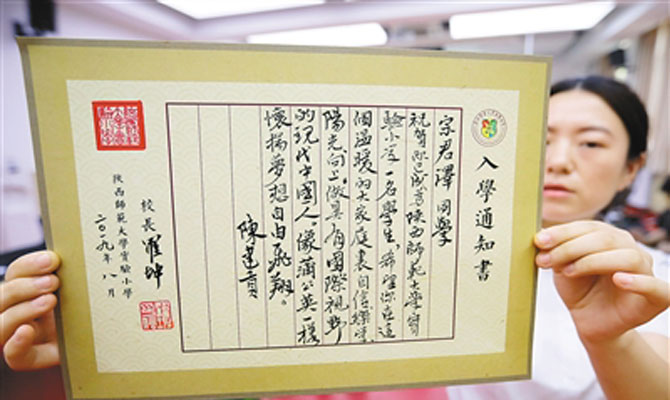 入學通知書
宗君澤 同學
祝賀你已成為陝西師範大學實
驗小學一名學生，希望你在這
個溫暖的大家庭裏自信
陽光向上，做具有國際視野
的現代中國人，像蒲公英一樣
懷揣夢想自由飛翔。
陳
校長
陝西師範大學實驗小學
二〇一九年八月